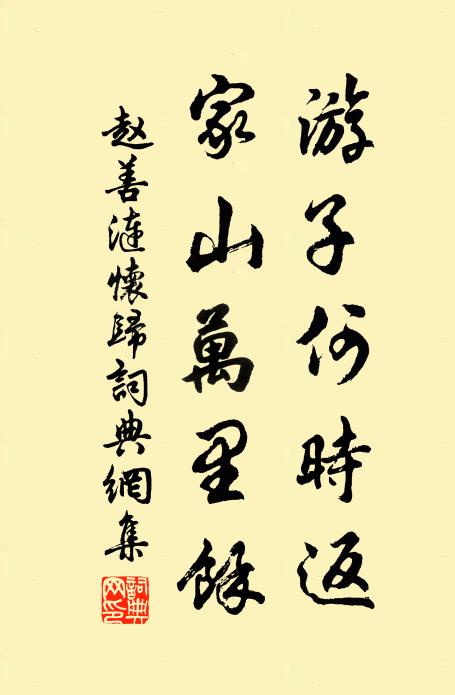 游子何時返
家山萬里餘
赵善漣懷歸詞典網集
詞典网印